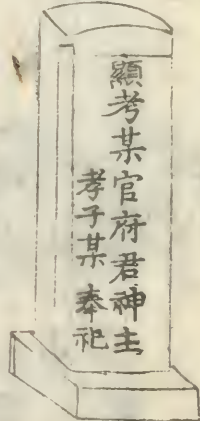 顯考某官府君神主
孝子某 奉祀